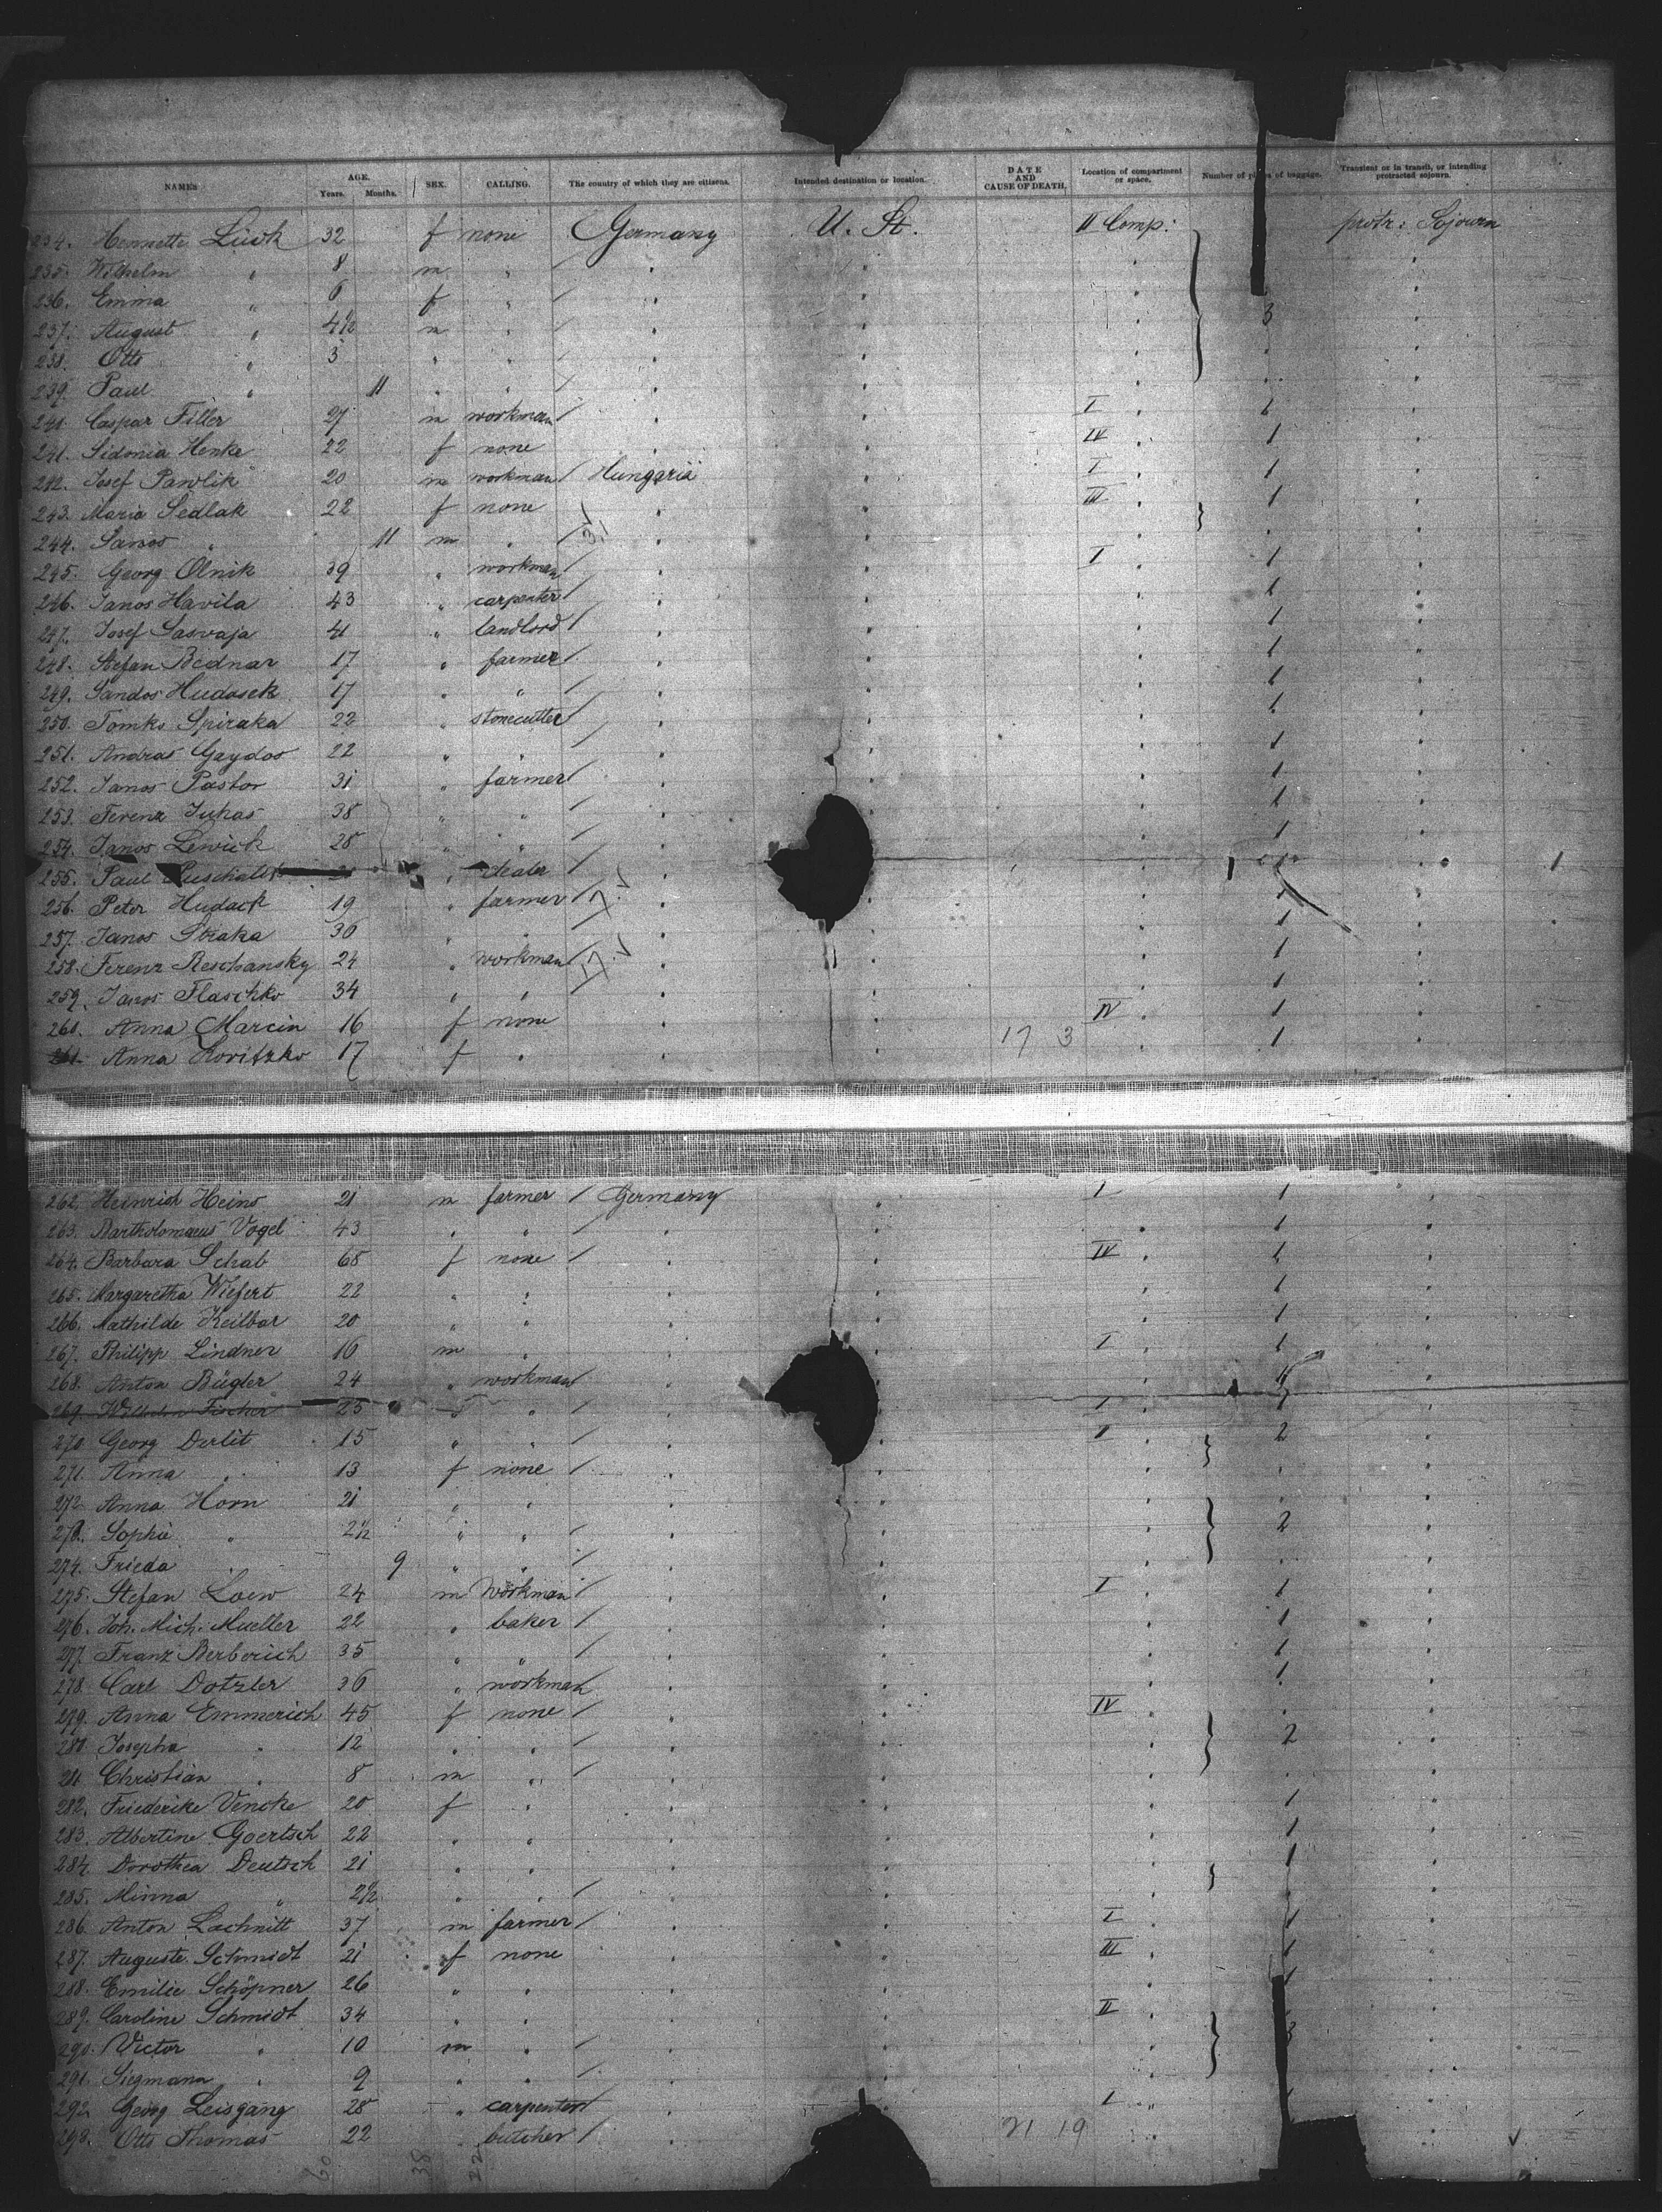 NAMES AGE. Years. Months. SEX. CALLING. The country of which they are citizens. Intended destination or location. DATE AND CAUSE OF DEATH. Location of compartment or space. Number of pieces of baggage. Transient or in transit, or intending protracted sojourn.
234. Hennette Lück 32 f none Germany U. St. II Comp: protr: Sojourn
235. Wilhelm " 8 m "
236. Emma " 6 f "
237. August " 4½ m " 3
238. Otto " 3 " "
239. Paul " 11 " "
240. Caspar Filler 27 m workman I 1
241. Sidonia Henke 22 f none IV 1
242. Josef Pawlik 20 m workman Hungaria I 1
243. Maria Sedlak 22 f none III 1
244. Janos " 11 m "
245. Georg Olnik 39 " workman I 1
246. Janos Havila 43 " carpenter 1
247. Josef Sasvaja 41 " landlord 1
248. Stefan Bednar 17 " farmer 1
249. Sandos Hudasek 17 " " 1
250. Tomko Spiraka 22 " stonecutter 1
251. Andras Gaydos 22 " " 1
252. Janos Pastor 31 " farmer 1
253. Ferenz Juhas 38 " " 1
254. Janos Lewick 28 " " 1
255. Paul dealer
256. Peter Hudack 19 " farmer 1
257. Janos Straka 36 " " 1
258. Ferenz Reschansky 24 " workman 1
259. Janos Flaschko 34 " " 1
260. Anna Marcin 16 f none IV 1
261. Anna Koritzko 17 f " 17 3 1
262. Heinrich Heins 21 m farmer Germany I 1
263. Bartholomaeus Vogel 43 " " 1
264. Barbara Schab 68 f none IV 1
265. Margaretha Wiefert 22 " " 1
266. Mathilde Keilbar 20 " " 1
267. Philipp Lindner 16 m " I 1
268. Anton Bügler 24 " workman
269. Wilhelm Fischer 25 " " I 1
270. Georg Derlit 15 " " II 2
271. Anna " 13 f none
272. Anna Horn 21 " "
273. Sophie " 2½ " " 2
274. Frieda " 9 " "
275. Stefan Loew 24 m workman I 1
276. Joh. Mich. Mueller 22 " baker 1
277. Franz Berberich 35 " " 1
278. Carl Dotzler 36 " workman 1
279. Anna Emmerich 45 f none IV
280. Josepha " 12 " " 2
281. Christian " 8 m "
282. Friederike Vencke 20 f " 1
283. Albertine Goertsch 22 " " 1
284. Dorothea Deutsch 21 " " 1
285. Minna " 2½ " "
286. Anton Lachnitt 37 m farmer I 1
287. Auguste Schmidt 21 f none III 1
288. Emilie Schöpner 26 " " 1
289. Caroline Schmidt 34 " " II
290. Victor " 10 m " 3
291. Siegmann " 9 " "
292. Georg Leisgang 28 " carpenter I
293. Otto Thomas 22 " butcher 21 19
60 38 22